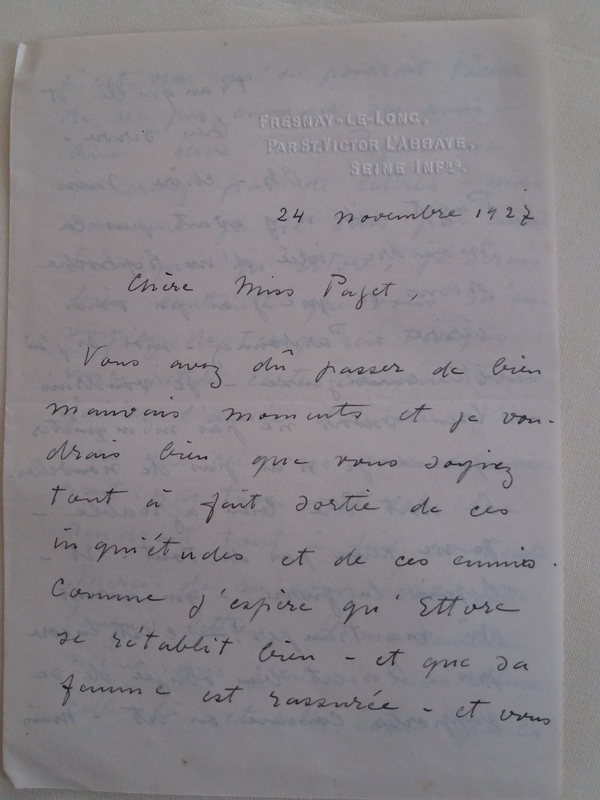 FRESNAY-LE-LONG,
PAR ST. VICTOR L'ABBAYE,
SEINE INFRE.
24 novembre 1927
Chère Miss Paget,
Vous avez dû passer de bien
mauvais moments et je vou-
drais bien que vous soyiez
tout à fait sortie de ces
inquiétudes et de ces ennuis.
Comme j'espère qu'Ettore
se rétablit bien - et que sa
femme est rassurée - et vous